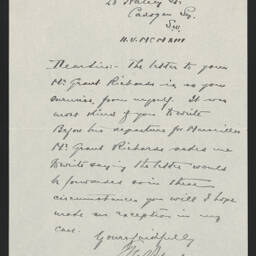 Cadogan Sq.
S.W.
Dear Sir:- The letter to your
Mr Grant Richards is as you
surmise, from myself. It was
most kind of you to write
Before his departure for Marseilles
Mr Grant Richards asked me
to write saying the letter would
be forwarded so in these
circumstances you will I hope
made an exception in my
case.
Yours faithfully